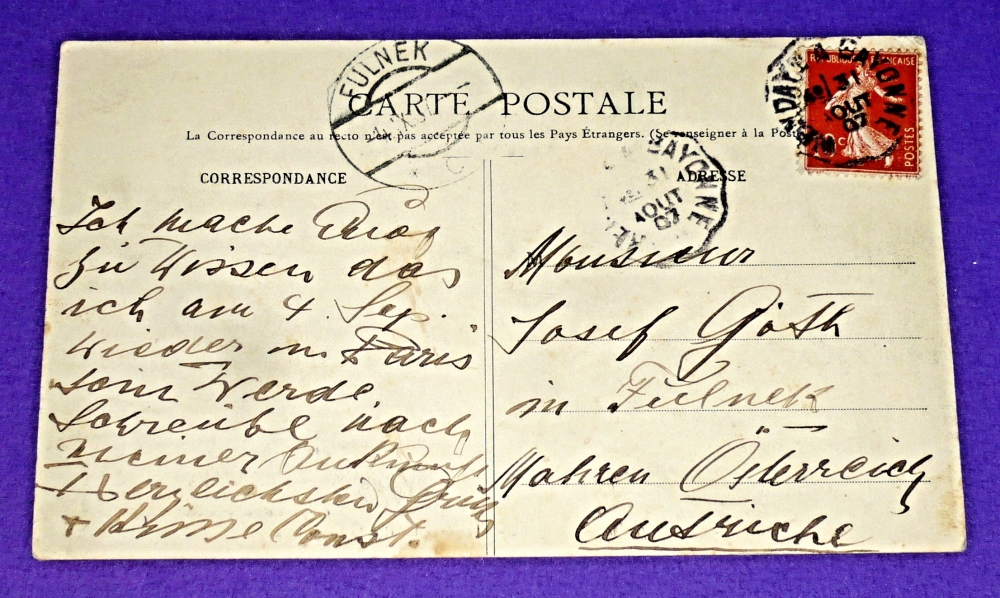 FULNEK
CARTE POSTALE
La Correspondance au recto n'est pas acceptée par tous les Pays Étrangers. (Se renseigner à la Poste
CORRESPONDANCE
ADRESSE
RÉPUBLIQUE FRANÇAISE
POSTES
BAYONNE
31
AOUT
07
BAYONNE
31
AOUT
07
Ich mache
zu Wissen das
ich am 4. Sep.
Wieder in Paris
sein Werde,
Schreibe nach
meiner Ankunft
Herzlichste Grüße
+ Küsse
Monsieur
Josef Göth
in Fulnek
Mahren Österreich
Autriche